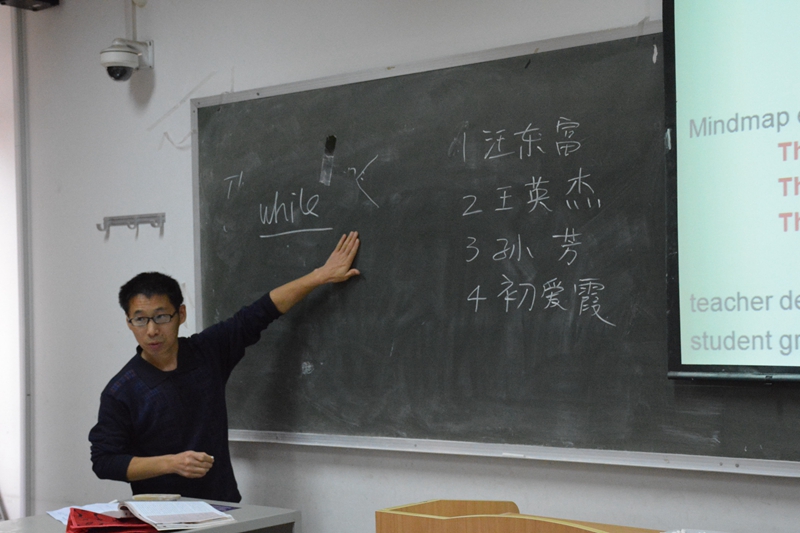 while
1 汪东富
2 王英杰
3 孙芳
4 初爱霞
Mindmap
Th
Th
Th
teacher de
student gr